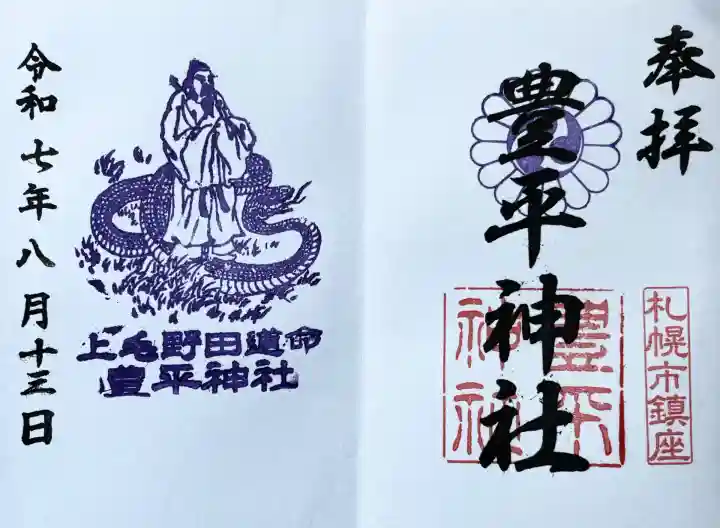 奉拝
豊平神社
豊平神社
札幌市鎮座
上毛野田道命
豊平神社
令和七年八月十三日